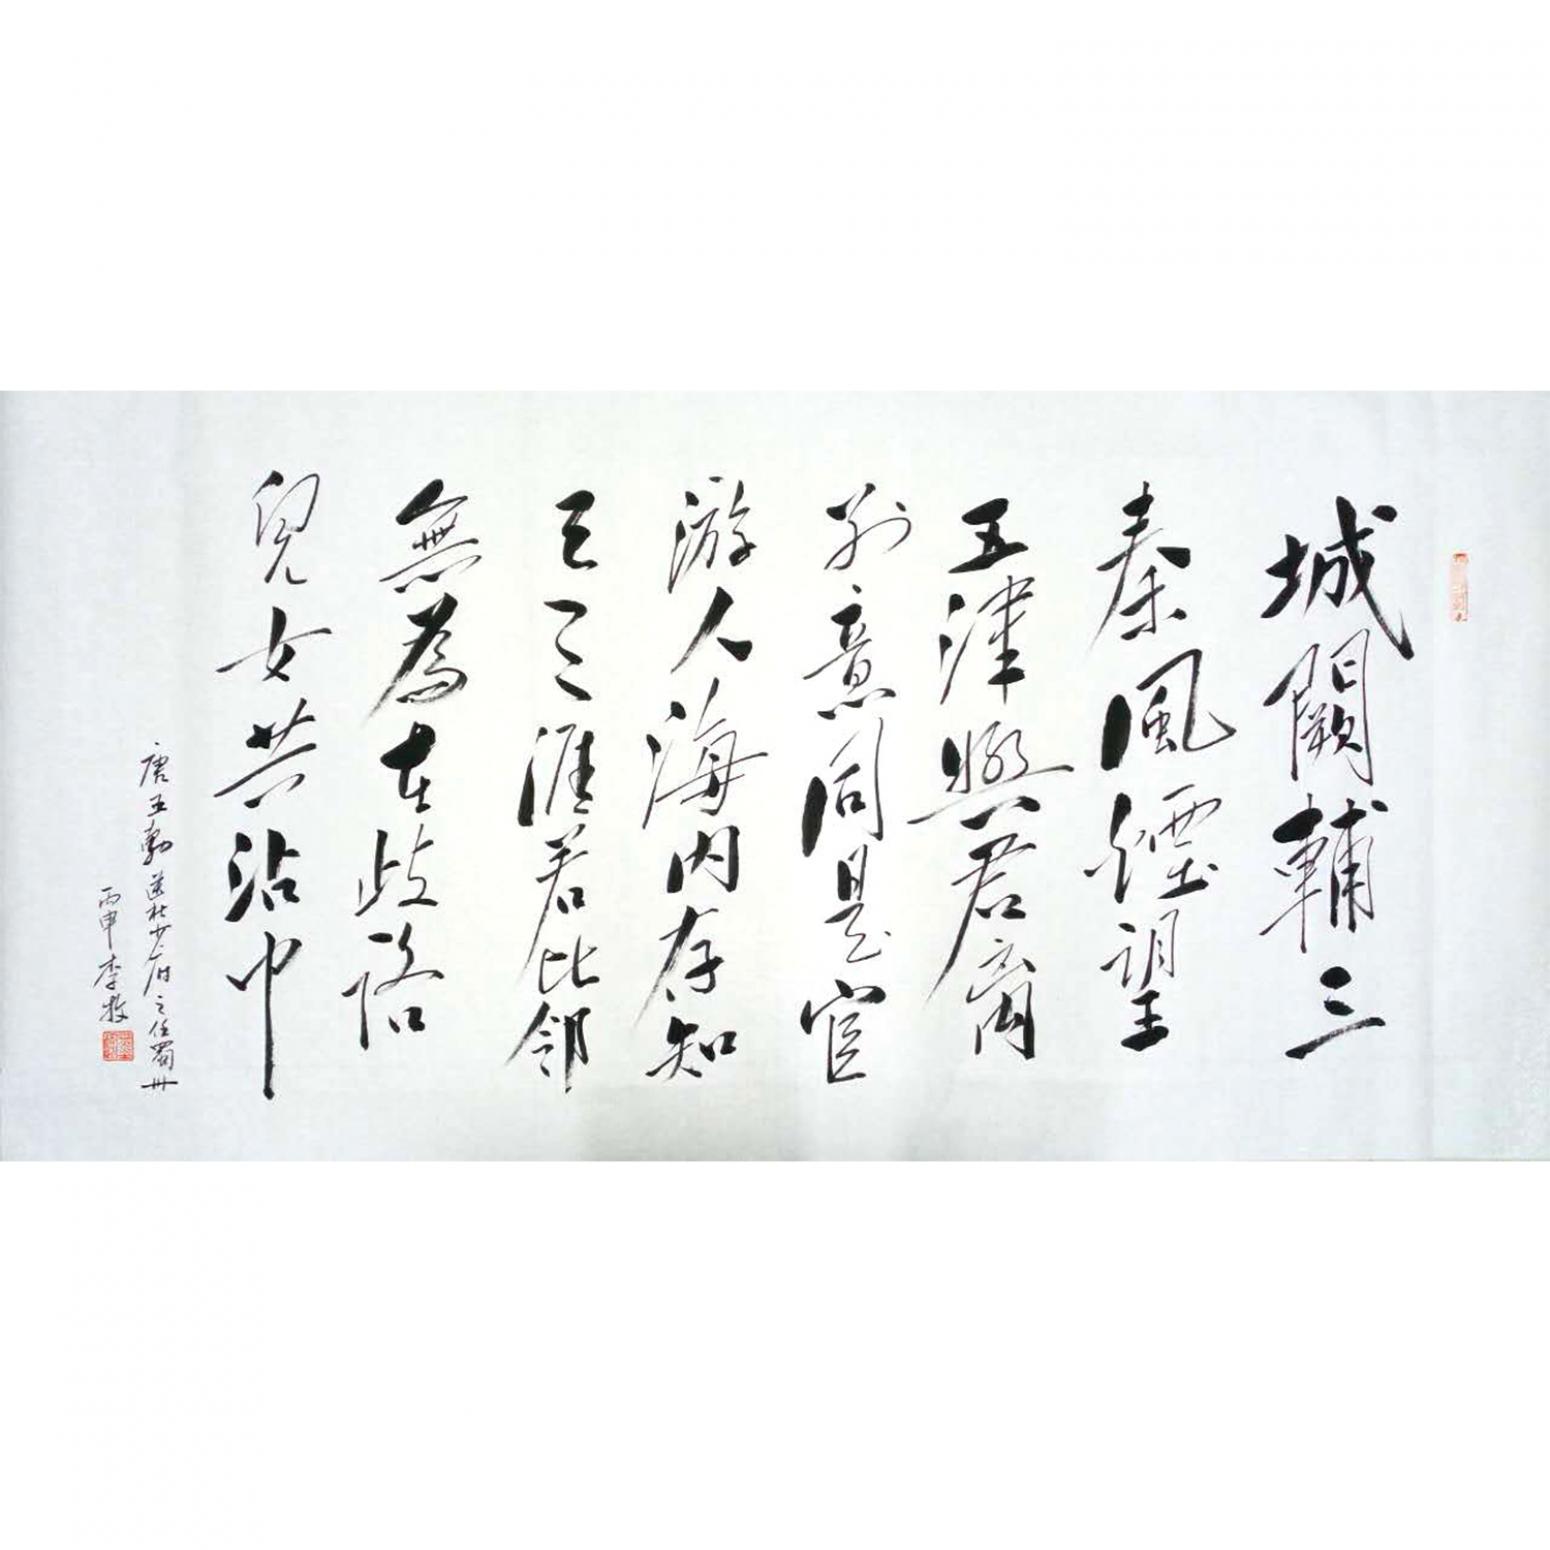 城闕輔三
秦風煙望
五津與君离
别意同是宦
游人海内存知
己天涯若比邻
無為在歧路
兒女共沾巾
唐王勃送杜少府之任蜀州
丙申李牧